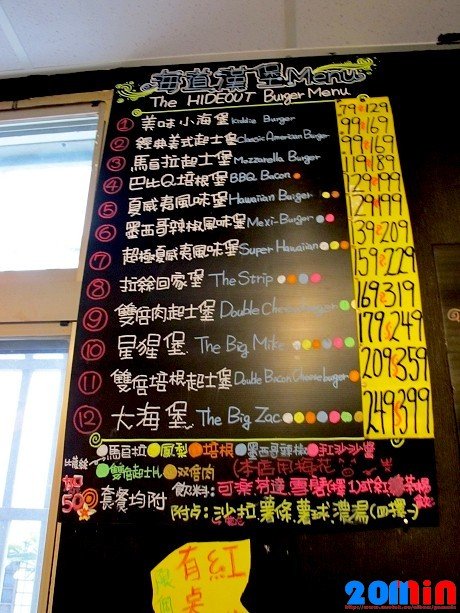 海道漢堡Menu
The HIDEOUT Burger Menu
① 美味小海堡 Kiddie Burger 79 129
② 經典美式起士堡 Classic American Burger 99 169
③ 馬自拉起士堡 Mozzarella Burger 99 169
④ 巴比Q培根堡 BBQ Bacon 119 189
⑤ 夏威夷風味堡 Hawaiian Burger 129 199
⑥ 墨西哥辣椒風味堡 Mexi-Burger 129 199
⑦ 超極夏威夷風味堡 Super Hawaiian 139 209
⑧ 拉鍊回家堡 The Strip 159 229
⑨ 雙倍肉起士堡 Double Cheeseburger 169 319
⑩ 星猩堡 The Big Mike 179 249
⑪ 雙倍培根起士堡 Double Bacon Cheeseburger 209 359
⑫ 大海堡 The Big Zac 249 399
馬自拉 鳳梨 培根 墨西哥辣椒
雙倍起士 雙倍肉
套餐均附 飲料:可樂 雪碧
附点:沙拉 薯條 薯球 濃湯(四擇一)
有紅
桌
20min